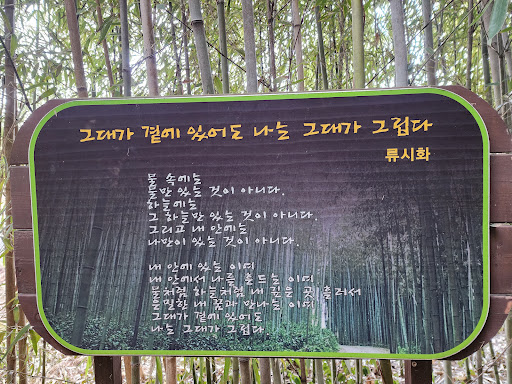 그대가 곁에 있어도 나는 그대가 그립다
류시화
물 속에는
물만 있는 것이 아니다.
하늘에는
그 하늘만 있는 것이 아니다.
그리고 내 안에는
나만이 있는 것이 아니다.
내 안에 있는 이여
내 안에서 나를 흔드는 이여
물처럼 하늘처럼 내 깊은 곳 흘러서
은밀한 내 꿈과 만나는 이여
그대가 곁에 있어도
나는 그대가 그립다